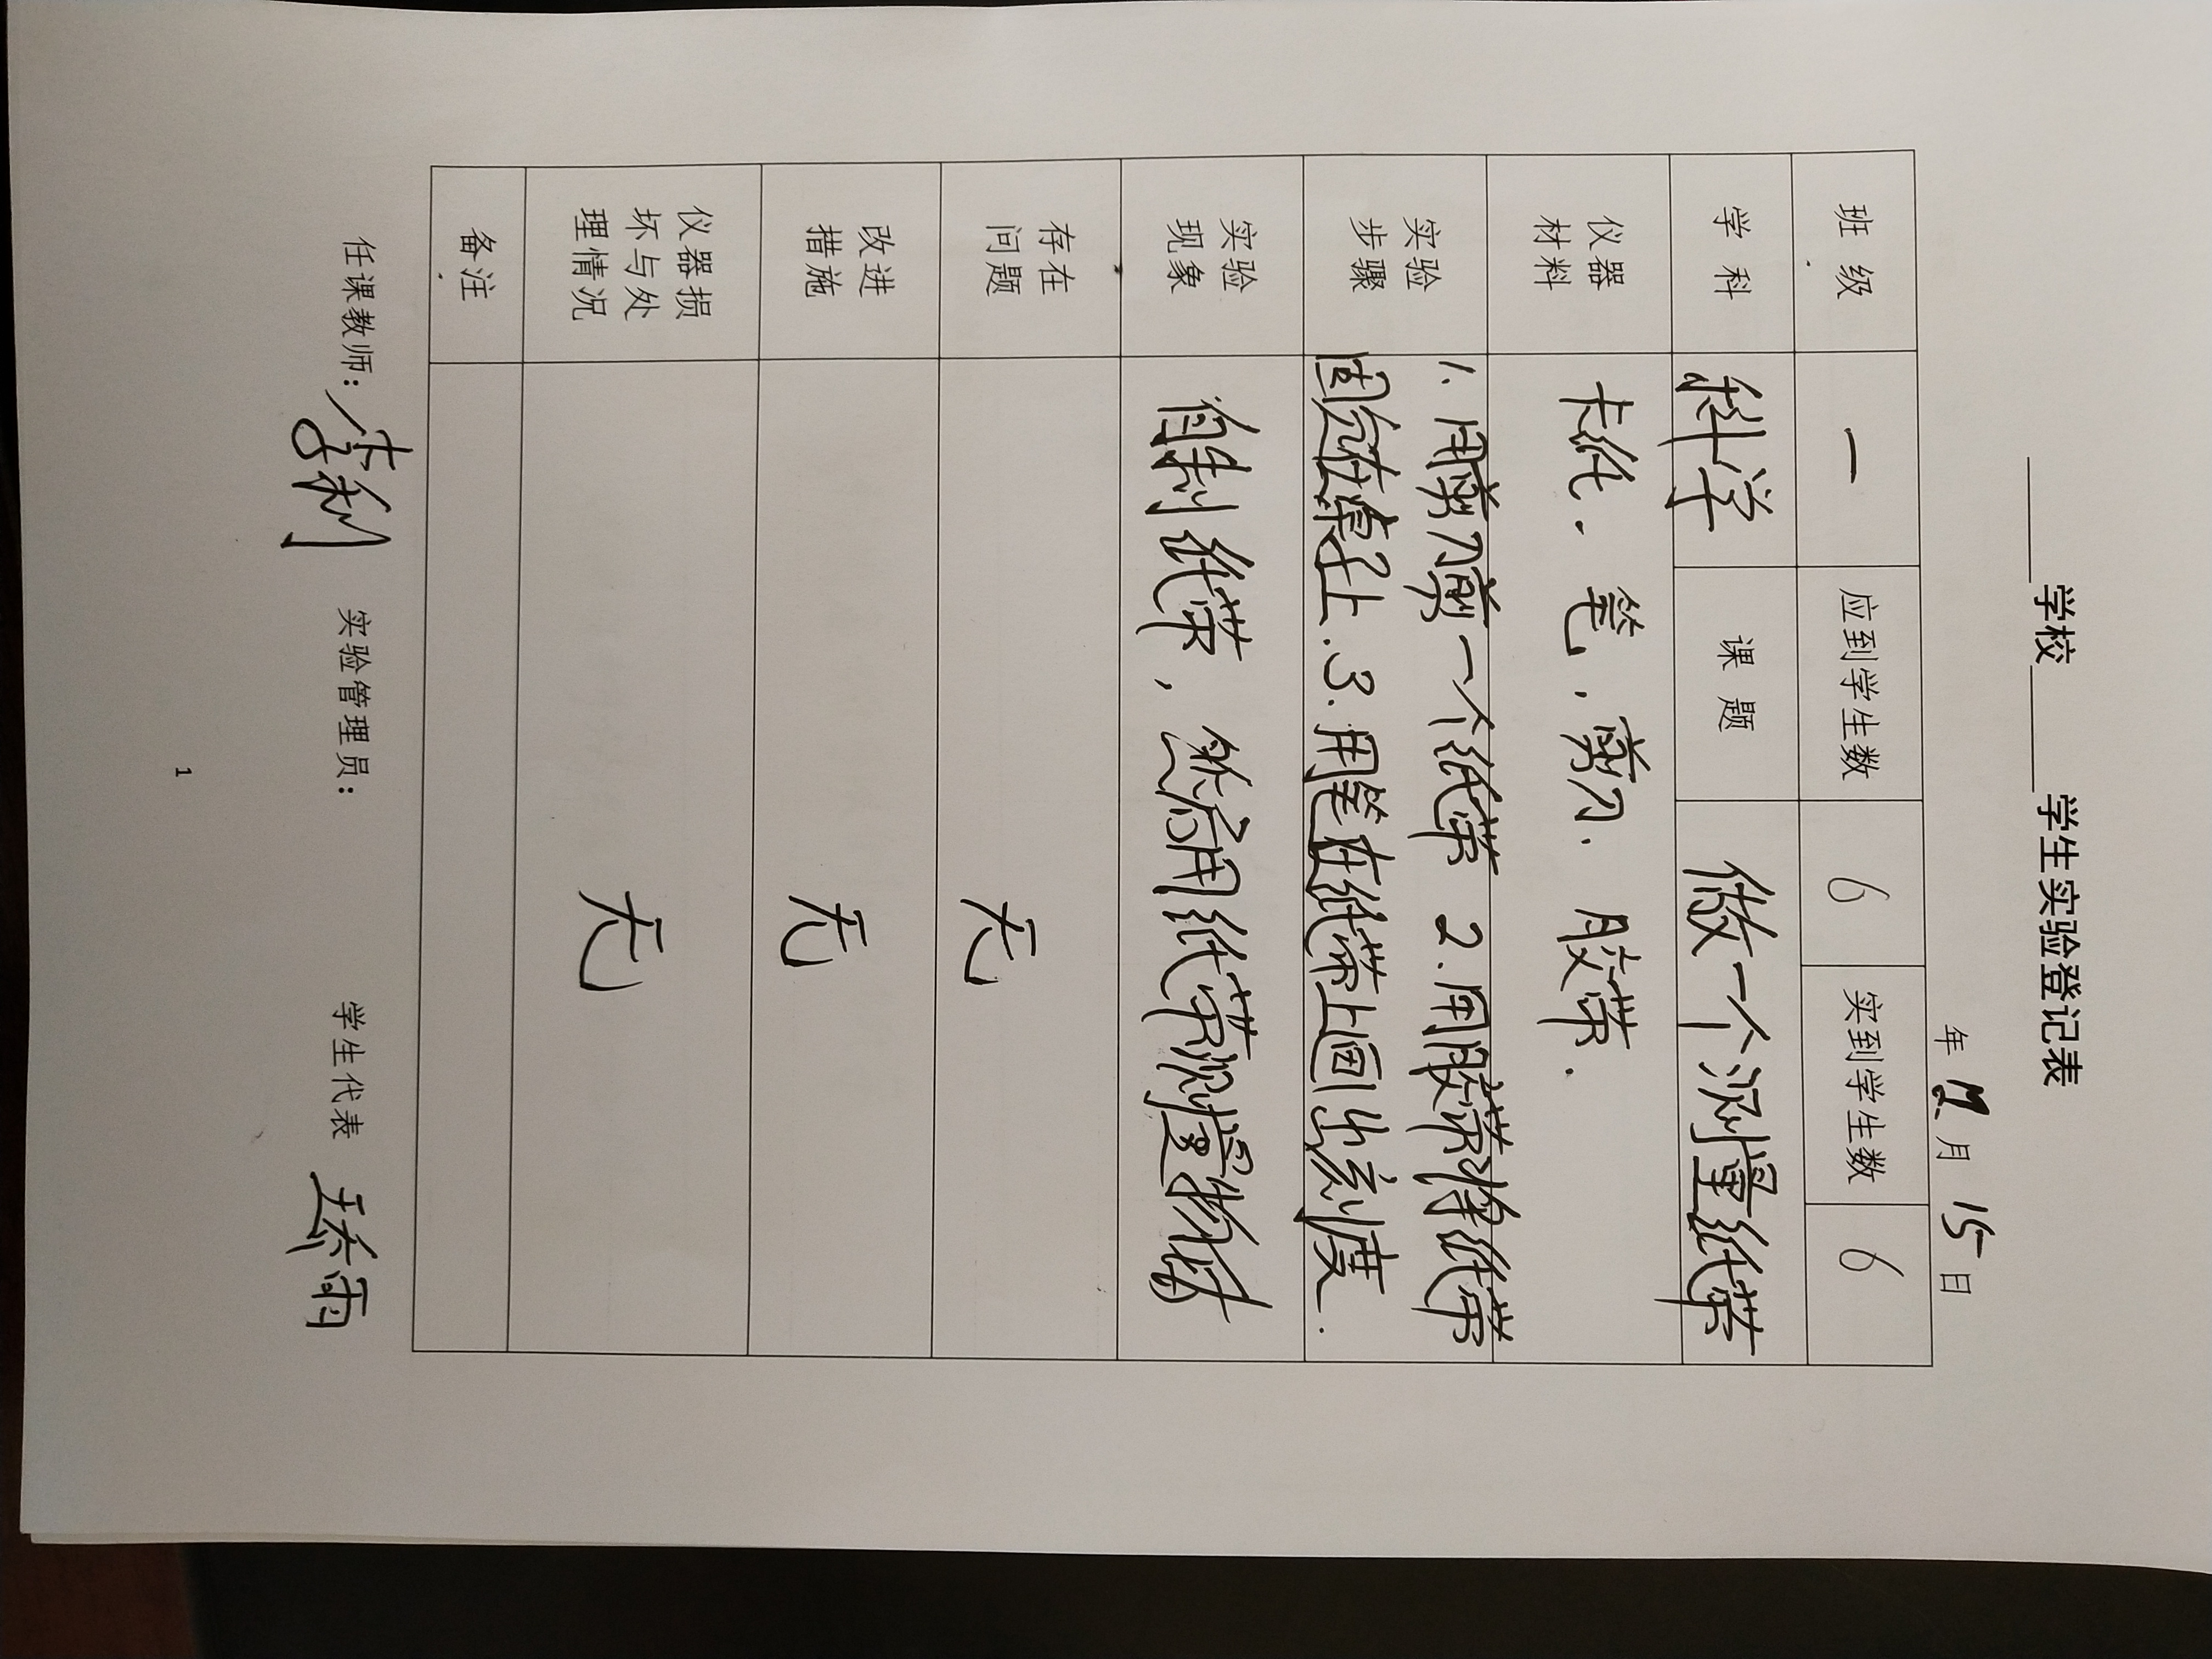 ____学校____学生实验登记表
年 12 月 15 日
班 级 一 应到学生数 6 实到学生数 6
学 科 科学 课 题 做一个测量纸带
仪器材料 卡纸. 笔, 剪刀. 胶带.
实验步骤 1. 用剪刀剪一个纸带 2. 用胶带将纸带
固定在桌子上. 3. 用笔在纸带上画出刻度.
实验现象 自制纸带, 然后用纸带测量物体
存在问题 无
改进措施 无
仪器损坏与处理情况 无
备注
任课教师: 李利 实验管理员: 学生代表
1